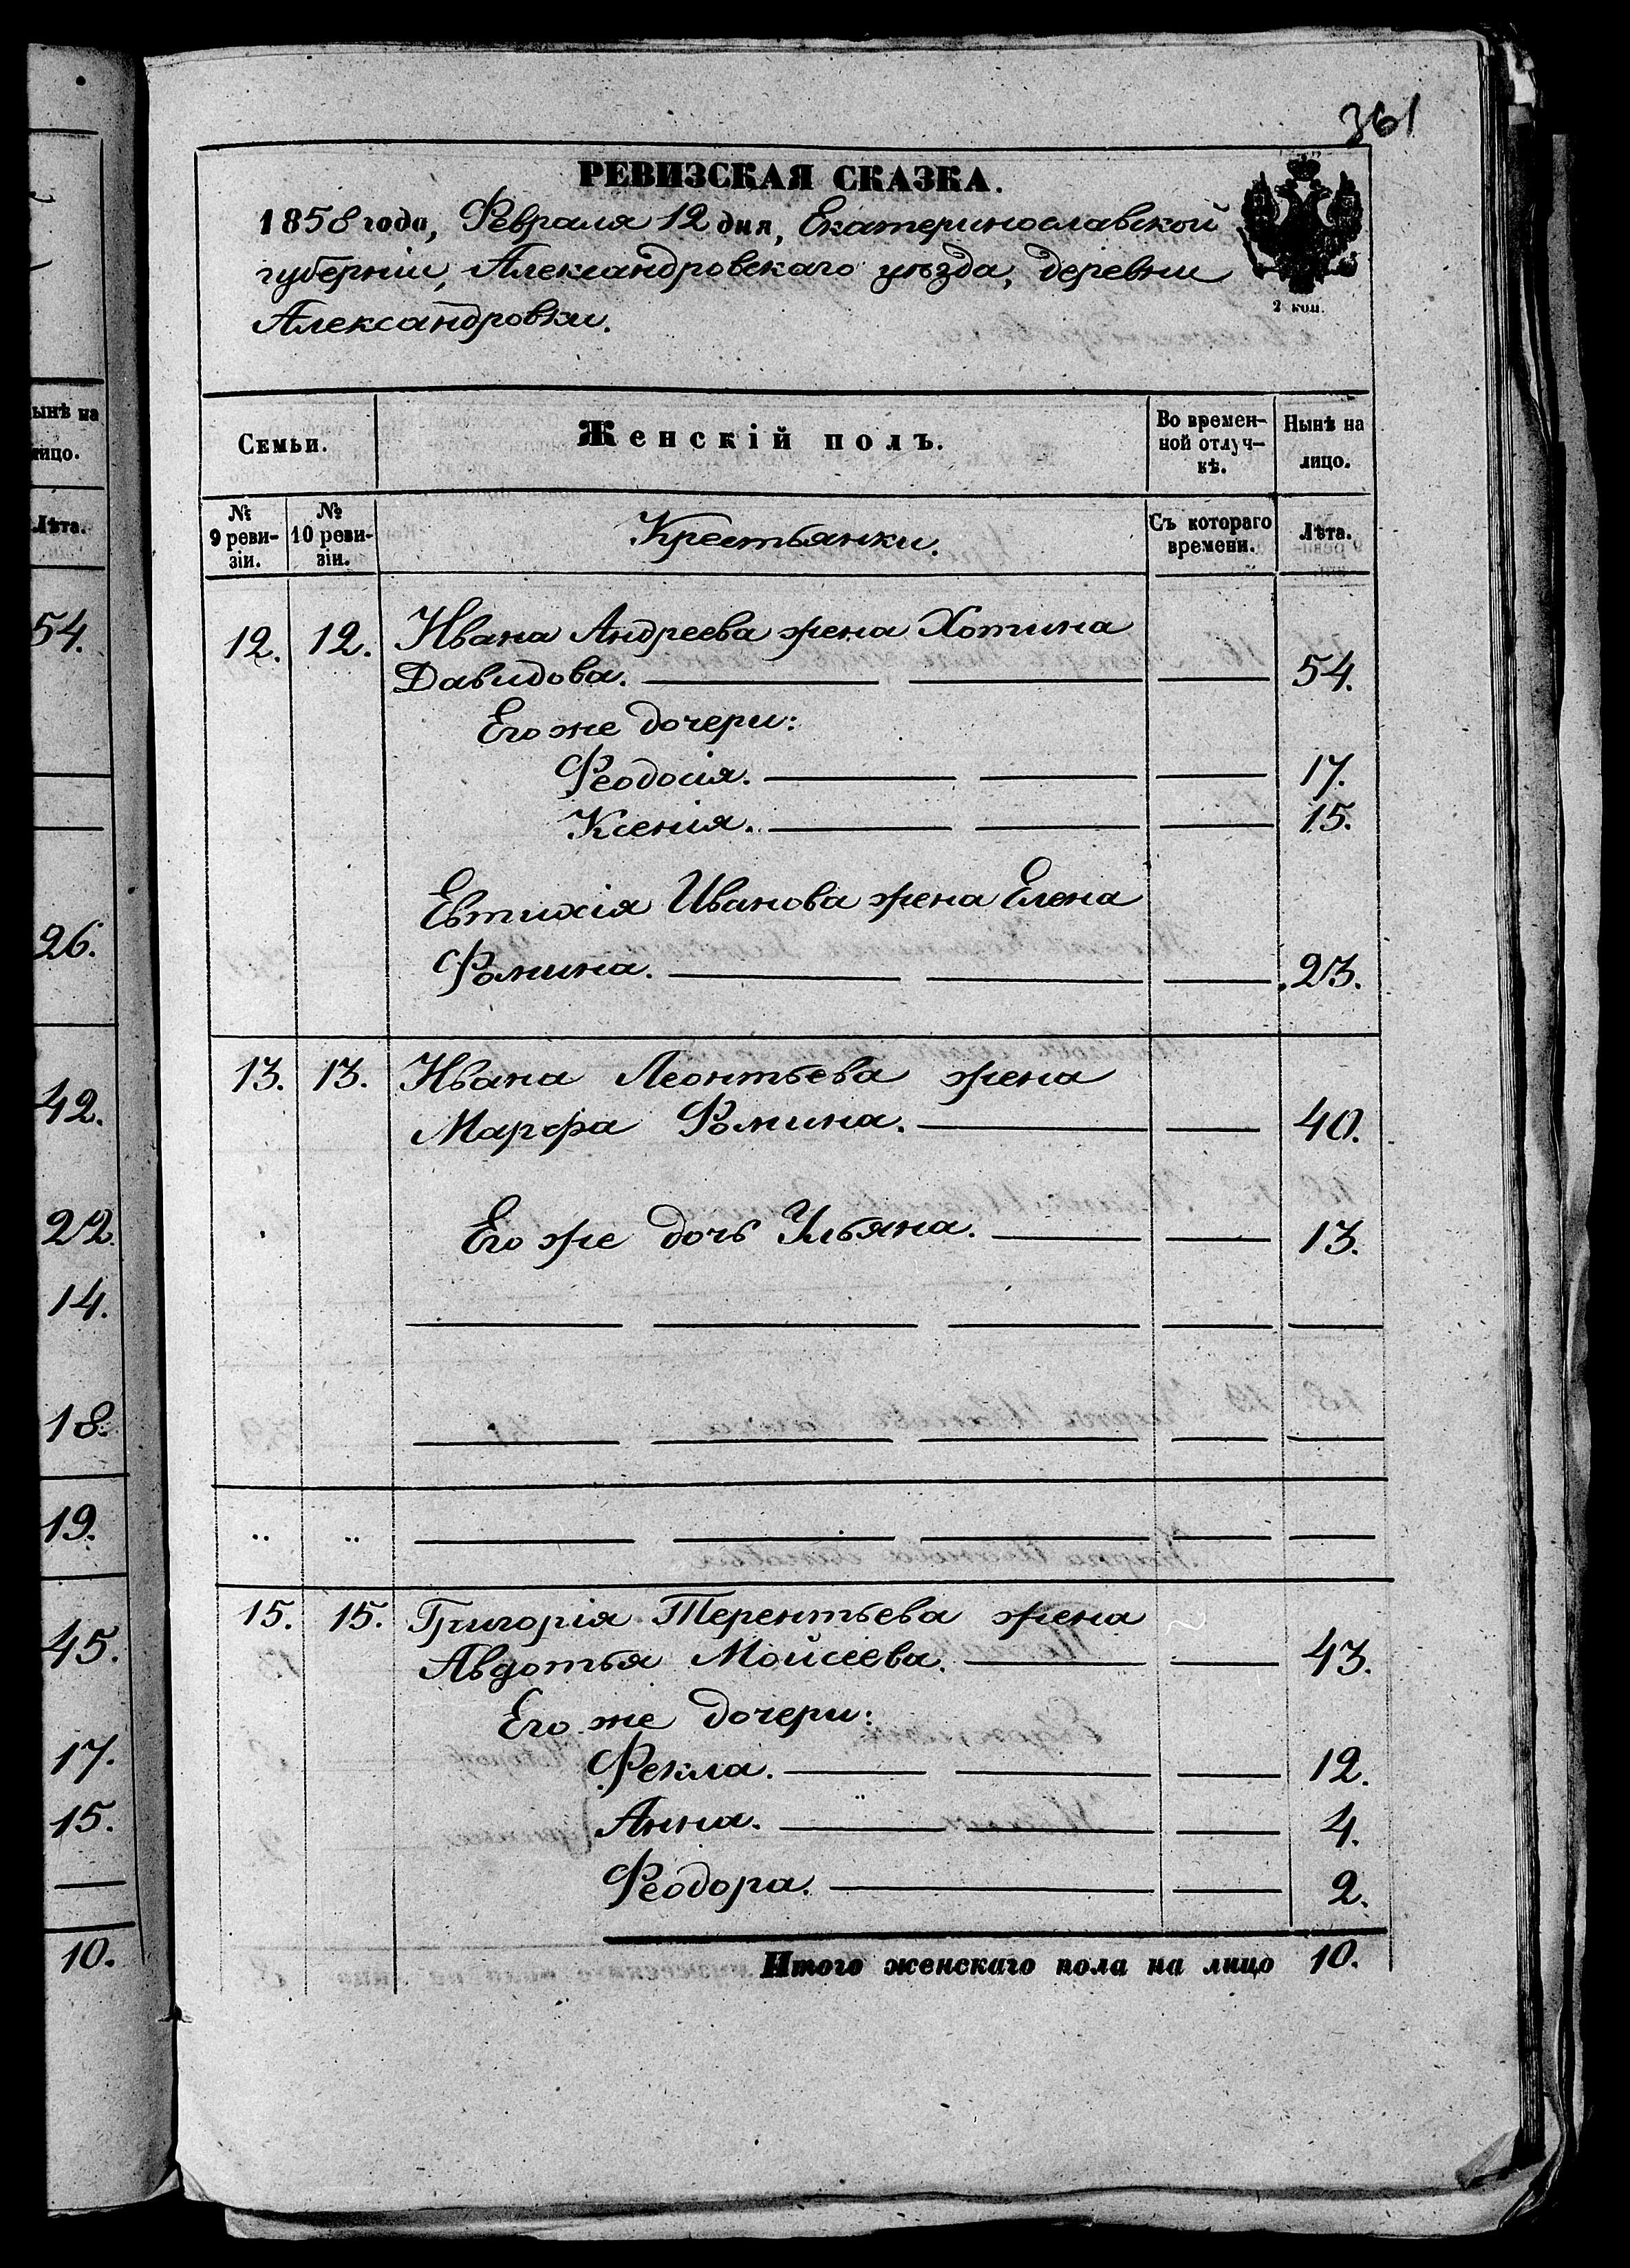 361
РЕВИЗСКАЯ СКАЗКА.
1858 года, Февраля 12 дня, Екатеринославской
губерніи, Александровскаго уѣзда, деревни
Александровки.
2 коп.
Семьи.
Женскій полъ.
Во времен-
ной отлуч-
кѣ.
Нынѣ на
лицо.
№
9 реви-
зіи.
№
10 реви-
зіи.
Крестьянки.
Съ котораго
времени.
Лѣта.
12. 12. Ивана Андреева жена Хотина
Давидова. 54.
Его же дочери:
Феодосія. 17.
Ксенія. 15.
Евтихія Иванова жена Елена
Фомина. 23.
13. 13. Ивана Леонтьева жена
Марфа Фомина. 40.
Его же дочь Ульяна. 13.
15. 15. Григорія Терентьева жена
Авдотья Мойсеева. 43.
Его же дочери:
Фекла. 12.
Анна. 4.
Феодора. 2.
Итого женскаго пола на лицо 10.
ынѣ на
лицо.
Лѣта.
54.
26.
42.
22.
14.
18.
19.
45.
17.
15.
10.